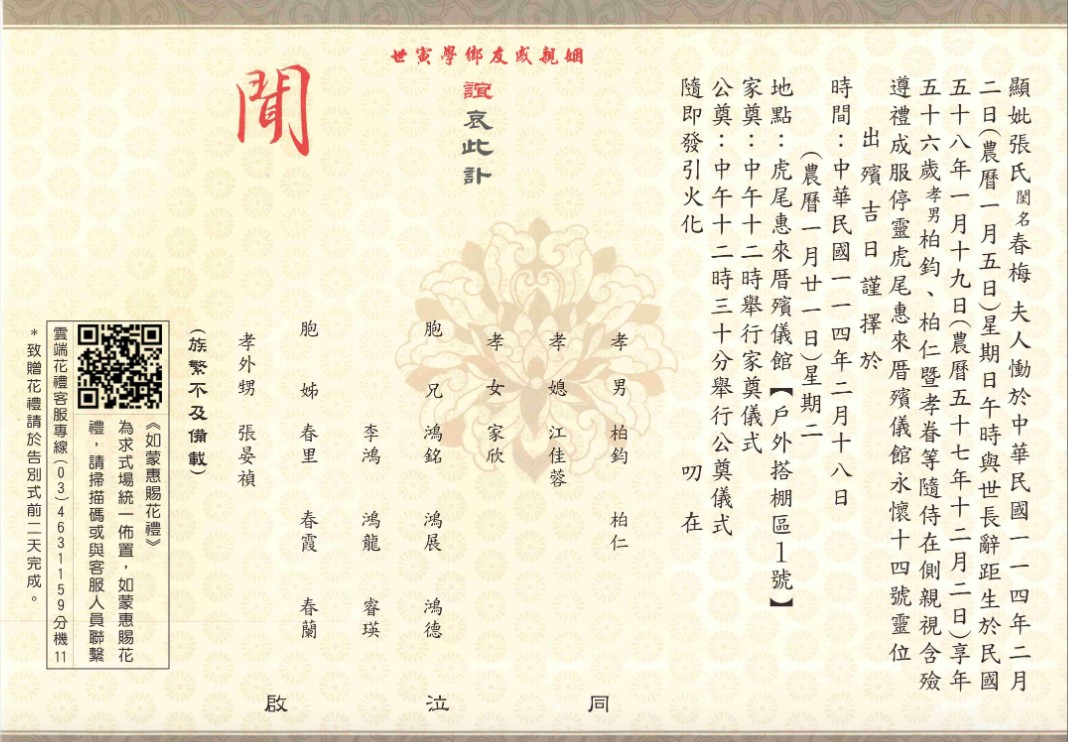 顯妣張氏閨名春梅 夫人慟於中華民國一一四年二月
二日(農曆一月五日)星期日午時與世長辭距生於民國
五十八年一月十九日(農曆五十七年十二月二日)享年
五十六歲孝男柏鈞、柏仁暨孝眷等隨侍在側親視含殮
遵禮成服停靈虎尾惠來厝殯儀館永懷十四號靈位
出殯吉日謹擇於
時間：中華民國一一四年二月十八日
(農曆一月廿一日)星期二
地點：虎尾惠來厝殯儀館【戶外搭棚區1號】
家奠：中午十二時舉行家奠儀式
公奠：中午十二時三十分舉行公奠儀式
隨即發引火化 叨在
世寅學鄉友戚親姻
誼哀此訃
聞
孝男 柏鈞 柏仁
孝媳 江佳蓉
孝女 家欣
胞兄 鴻銘 鴻展 鴻德
李鴻 鴻龍 睿瑛
胞姊 春里 春霞 春蘭
孝外甥 張晏禎
(族繁不及備載)
同泣啟
《如蒙惠賜花禮》
為求式場統一佈置，如蒙惠賜花
禮，請掃描碼或與客服人員聯繫
雲端花禮客服專線(03)4631159分機11
*致贈花禮請於告別式前二天完成。